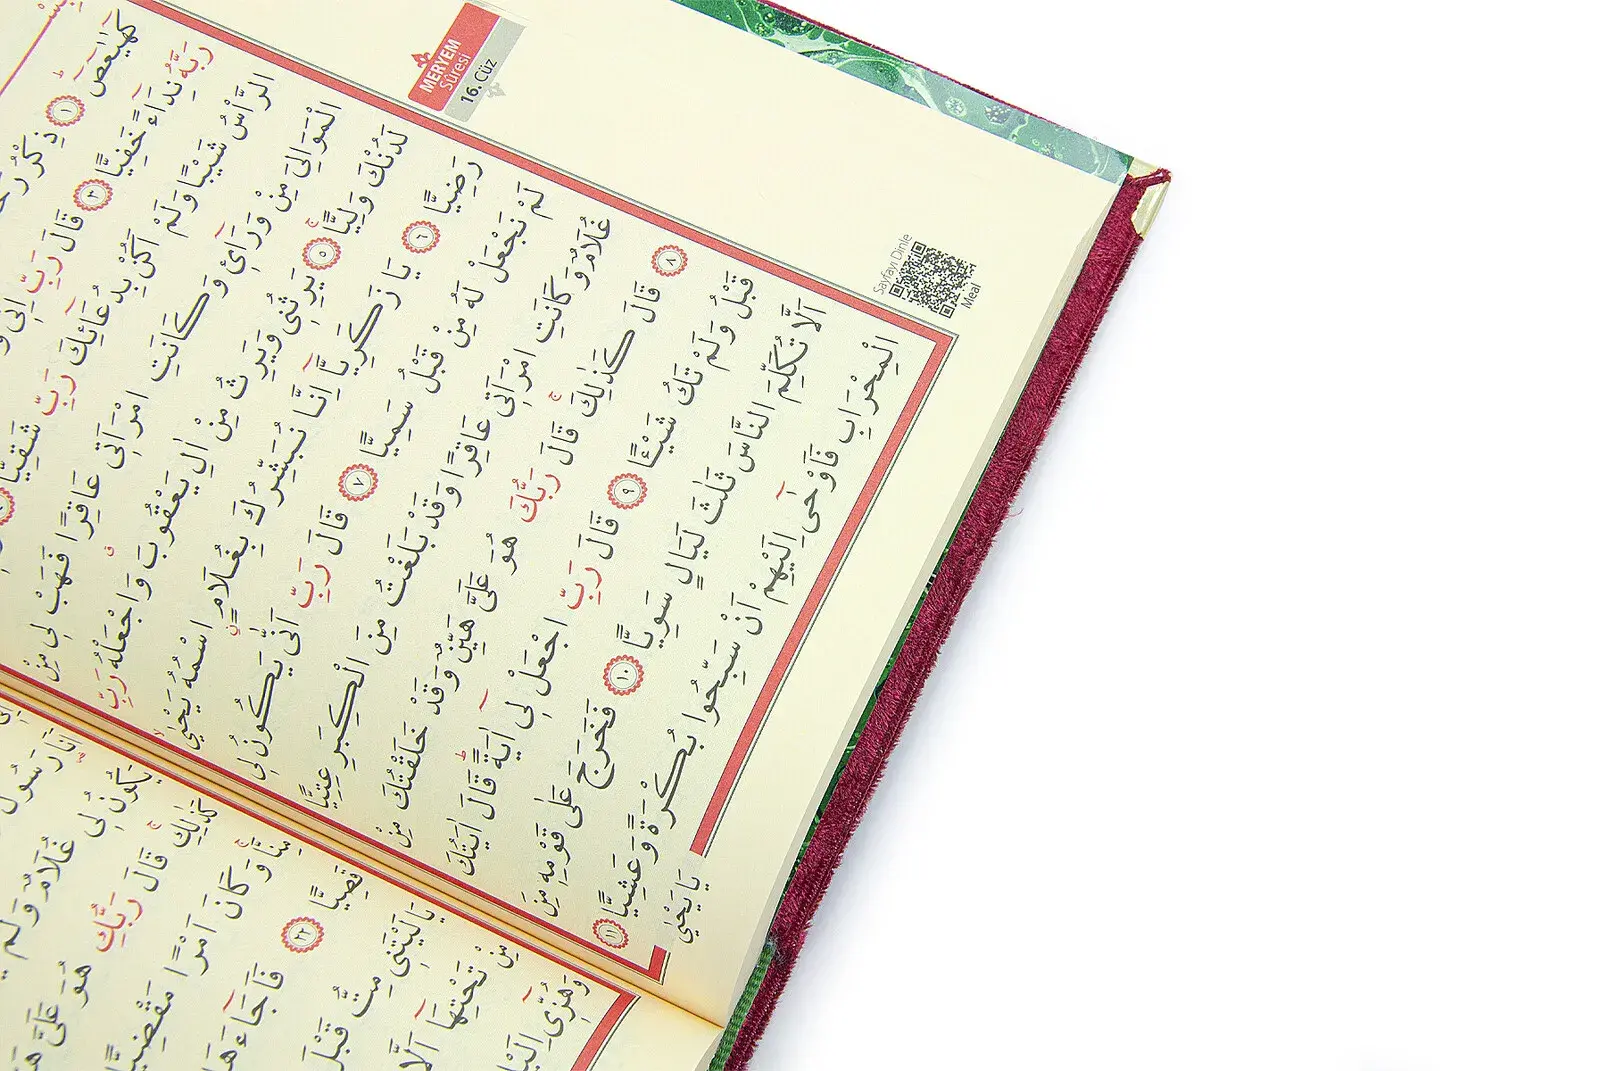 MERYEM
Sûresi
16. Cüz
كٓهٰيٰعٓصٓ ١ ذِكْرُ
رَبَّهُ نِدَٓاءً خَفِيًّا ٣ قَالَ رَبِّ اِنِّى
الرَّأْسُ شَيْبًا وَلَمْ اَكُنْ بِدُعَٓائِكَ رَبِّ شَقِيًّا ٤
الْمَوَالِىَ مِنْ وَرَٓائِى وَكَانَتِ امْرَاَتِى عَاقِرًا فَهَبْ لِى مِنْ
لَدُنْكَ وَلِيًّا ٥ يَرِثُنِى وَيَرِثُ مِنْ اٰلِ يَعْقُوبَ وَاجْعَلْهُ رَبِّ
رَضِيًّا ٦ يَا زَكَرِيَّٓا اِنَّا نُبَشِّرُكَ بِغُلَامٍ اسْمُهُ يَحْيٰى
لَمْ نَجْعَلْ لَهُ مِنْ قَبْلُ سَمِيًّا ٧ قَالَ رَبِّ اَنّٰى يَكُونُ لِى
غُلَامٌ وَكَانَتِ امْرَاَتِى عَاقِرًا وَقَدْ بَلَغْتُ مِنَ الْكِبَرِ عِتِيًّا
٨ قَالَ كَذٰلِكَ قَالَ رَبُّكَ هُوَ عَلَىَّ هَيِّنٌ وَقَدْ خَلَقْتُكَ مِنْ
قَبْلُ وَلَمْ تَكُ شَيْـًٔا ٩ قَالَ رَبِّ اجْعَلْ لِى اٰيَةً قَالَ اٰيَتُكَ
اَلَّا تُكَلِّمَ النَّاسَ ثَلٰثَ لَيَالٍ سَوِيًّا ١٠ فَخَرَجَ عَلٰى قَوْمِهِ مِنَ
الْمِحْرَابِ فَاَوْحٰٓى اِلَيْهِمْ اَنْ سَبِّحُوا بُكْرَةً وَعَشِيًّا ١١
يَا يَحْيٰى
Sayfayı Dinle
Meal
اَنَا رَسُولُ
يَكُونُ لِى غُلَامٌ وَلَمْ
كَذٰلِكِ قَالَ رَبُّكِ هُوَ عَلَىَّ
مِنَّا وَكَانَ اَمْرًا مَقْضِيًّا
قَصِيًّا ٢٢ فَاَجَٓاءَهَا
يَا لَيْتَنِى مِتُّ قَبْلَ
مِنْ تَحْتِهَٓا اَلَّا
وَهُزِّٓى